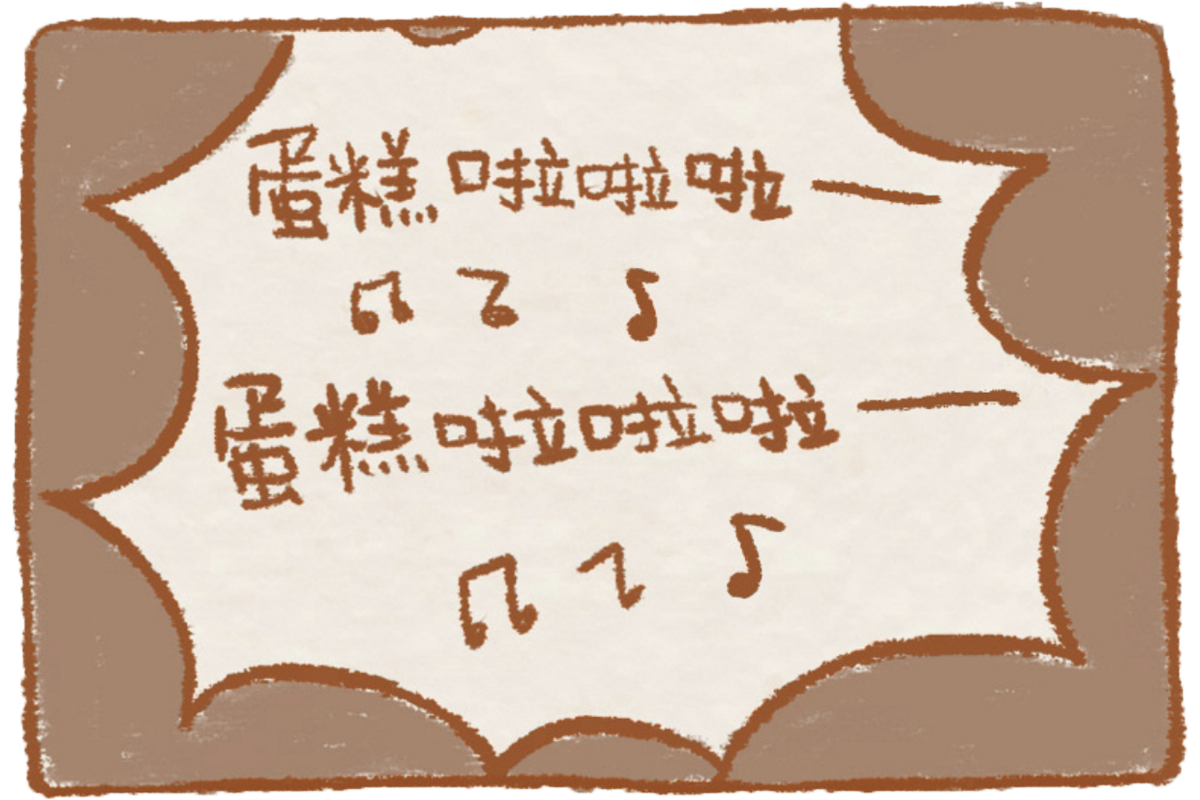 蛋糕啦啦啦—
蛋糕啦啦啦—